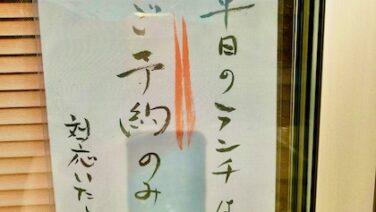 平日のランチは
ご予約のみ
対応いた